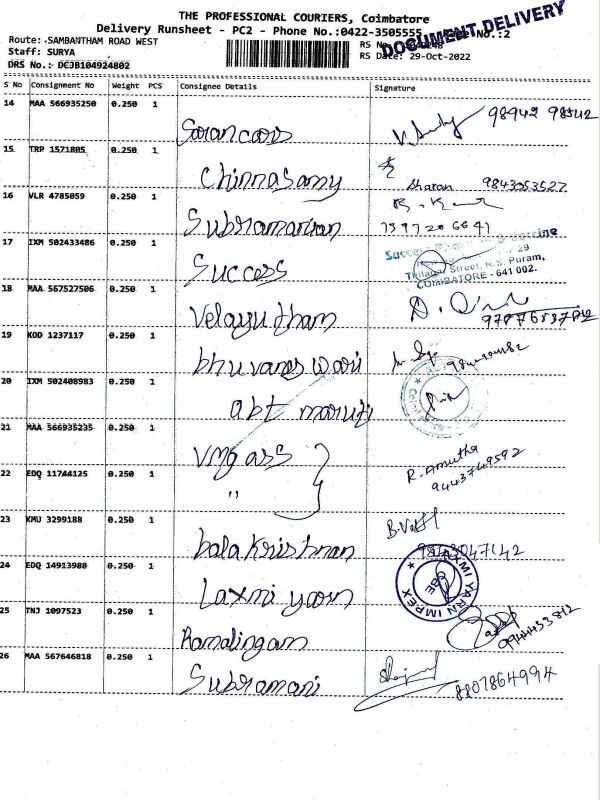 THE PROFESSIONAL COURIERS, Coimbatore
DOCUMENT DELIVERY
Delivery Runsheet - PC2 - Phone No.:0422-3505555 No.:2
Route: SAMBANTHAM ROAD WEST
RS No
Staff: SURYA
RS Date: 29-Oct-2022
DRS No.: DCJB104924802
S No Consignment No Weight PCS Consignee Details Signature
14 MAA 566935250 0.250 1
98942 98542
15 TRP 1571805 0.250 1 Chinnasamy
Sharan 9843053527
16 VLR 4785059 0.250 1 Subramanian
17 IXM 502433486 0.250 1 Success
Success
29
Thilagar Street, K.S. Puram,
COIMBATORE - 641 002.
18 MAA 567527506 0.250 1 Velayutham
19 KOD 1237117 0.250 1 bhuvaneswari
20 IXM 502408983 0.250 1 abt maruti
21 MAA 566935235 0.250 1 vmg ass
R. Amutha
9443749592
22 EDQ 11744125 0.250 1 "
23 KMU 3299188 0.250 1 balakrishnan
9843047142
24 EDQ 14913988 0.250 1 Laxmi yarn
LAXMI YARN IMPEX
CBE
25 TNJ 1097523 0.250 1 Ramalingam
9944453812
26 MAA 567646818 0.250 1 Subramani
8807864994